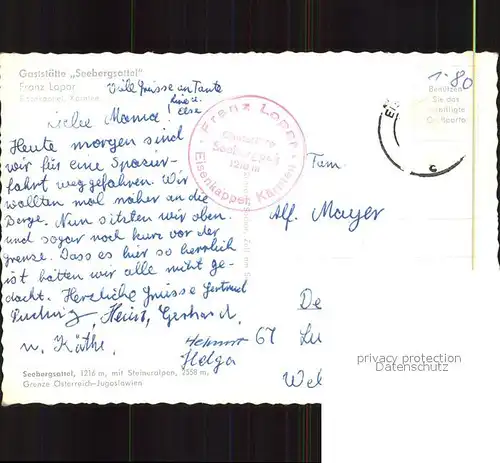 Gaststätte „Seebergsattel"
Franz Lopar
Eisenkappel, Kärnten
Viele Grüsse an Tante
Else
Liebe Mama!
Heute morgen sind
wir für eine Spazier-
fahrt weggefahren. Wir
wollten mal näher an die
Berge. Nun sitzten wir oben
und sogar noch kurz vor der
Grenze. Dass es hier so herrlich
ist hätten wir alle nicht ge-
dacht. Herzliche Grüsse Gertrud
Heinz, Gerhard,
u. Käthe,
Helmut
Helga
Seebergsattel, 1216 m, mit Steineralpen, 2558 m,
Grenze Österreich-Jugoslawien
Franz Lopar
Gaststätte
Seebergsattel
1216 m
Eisenkappel, Kärnten
1.80
Benützen
Sie das
Fam.
Alf. Mayer
De
67 Lu
Wel
privacy protection
Datenschutz